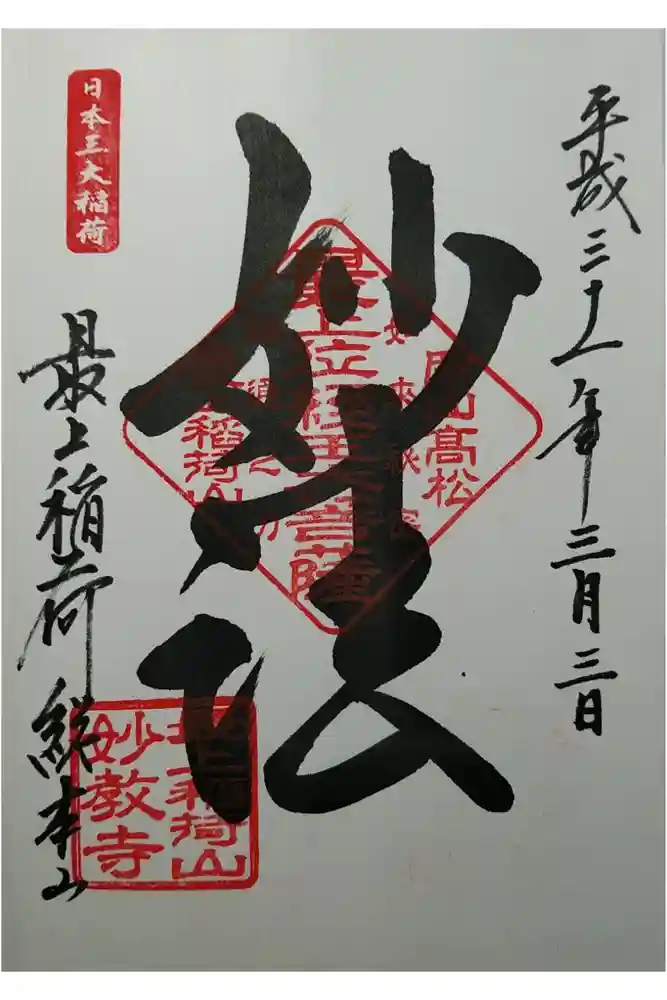 平成三十一年三月三日
妙法
日本三大稲荷
最上稲荷 総本山
岡山高松
最上位経王大菩薩
稲荷山
最上稲荷山
妙教寺